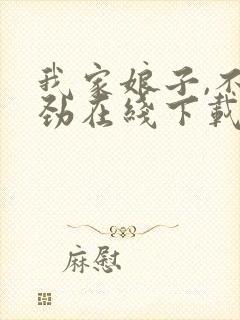 我家娘子,不
劲在线下载
麻慰